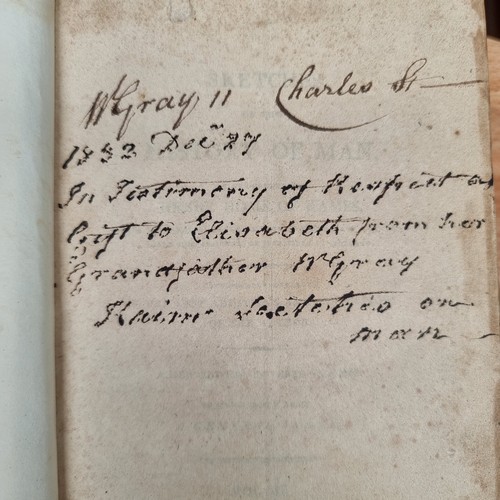 Wm Gray 11 Charles St
1832 Decr 27
In Testimony of Respect a
Gift to Elisabeth from her
Grandfather Wm Gray
Kaims Sketches on
man